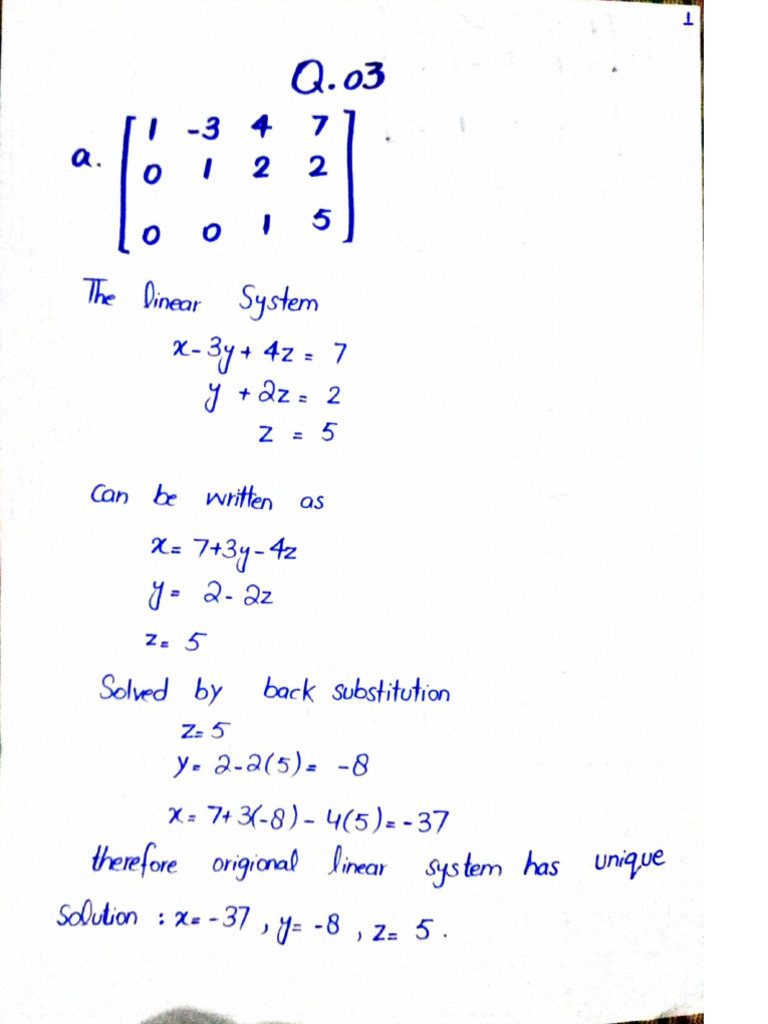 1
Q.03
a. [ 1 -3 4 7
0 1 2 2
0 0 1 5 ]
The linear System
x-3y+ 4z = 7
y + 2z = 2
z = 5
Can be written as
x= 7+3y-4z
y= 2-2z
z= 5
Solved by back substitution
z= 5
y= 2-2(5)= -8
x= 7+3(-8)- 4(5)=-37
therefore origional linear system has unique
Solution : x=-37 , y= -8 , z= 5 .